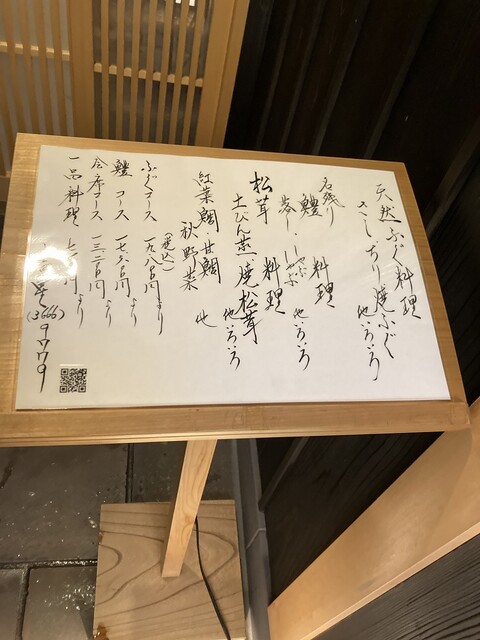 天然ふぐ料理
さし、ちり、焼ふぐ
他いろいろ
名残り
鱧 料理
落し、しゃぶしゃぶ
他いろいろ
松茸 料理
土びん蒸、焼松茸
他いろいろ
紅葉鯛 甘鯛
秋野菜 他
(税込)
ふぐコース 一九八〇〇円より
鱧 コース 円より
会席コース 一三二〇〇円より
一品料理 円より
(3666)9779